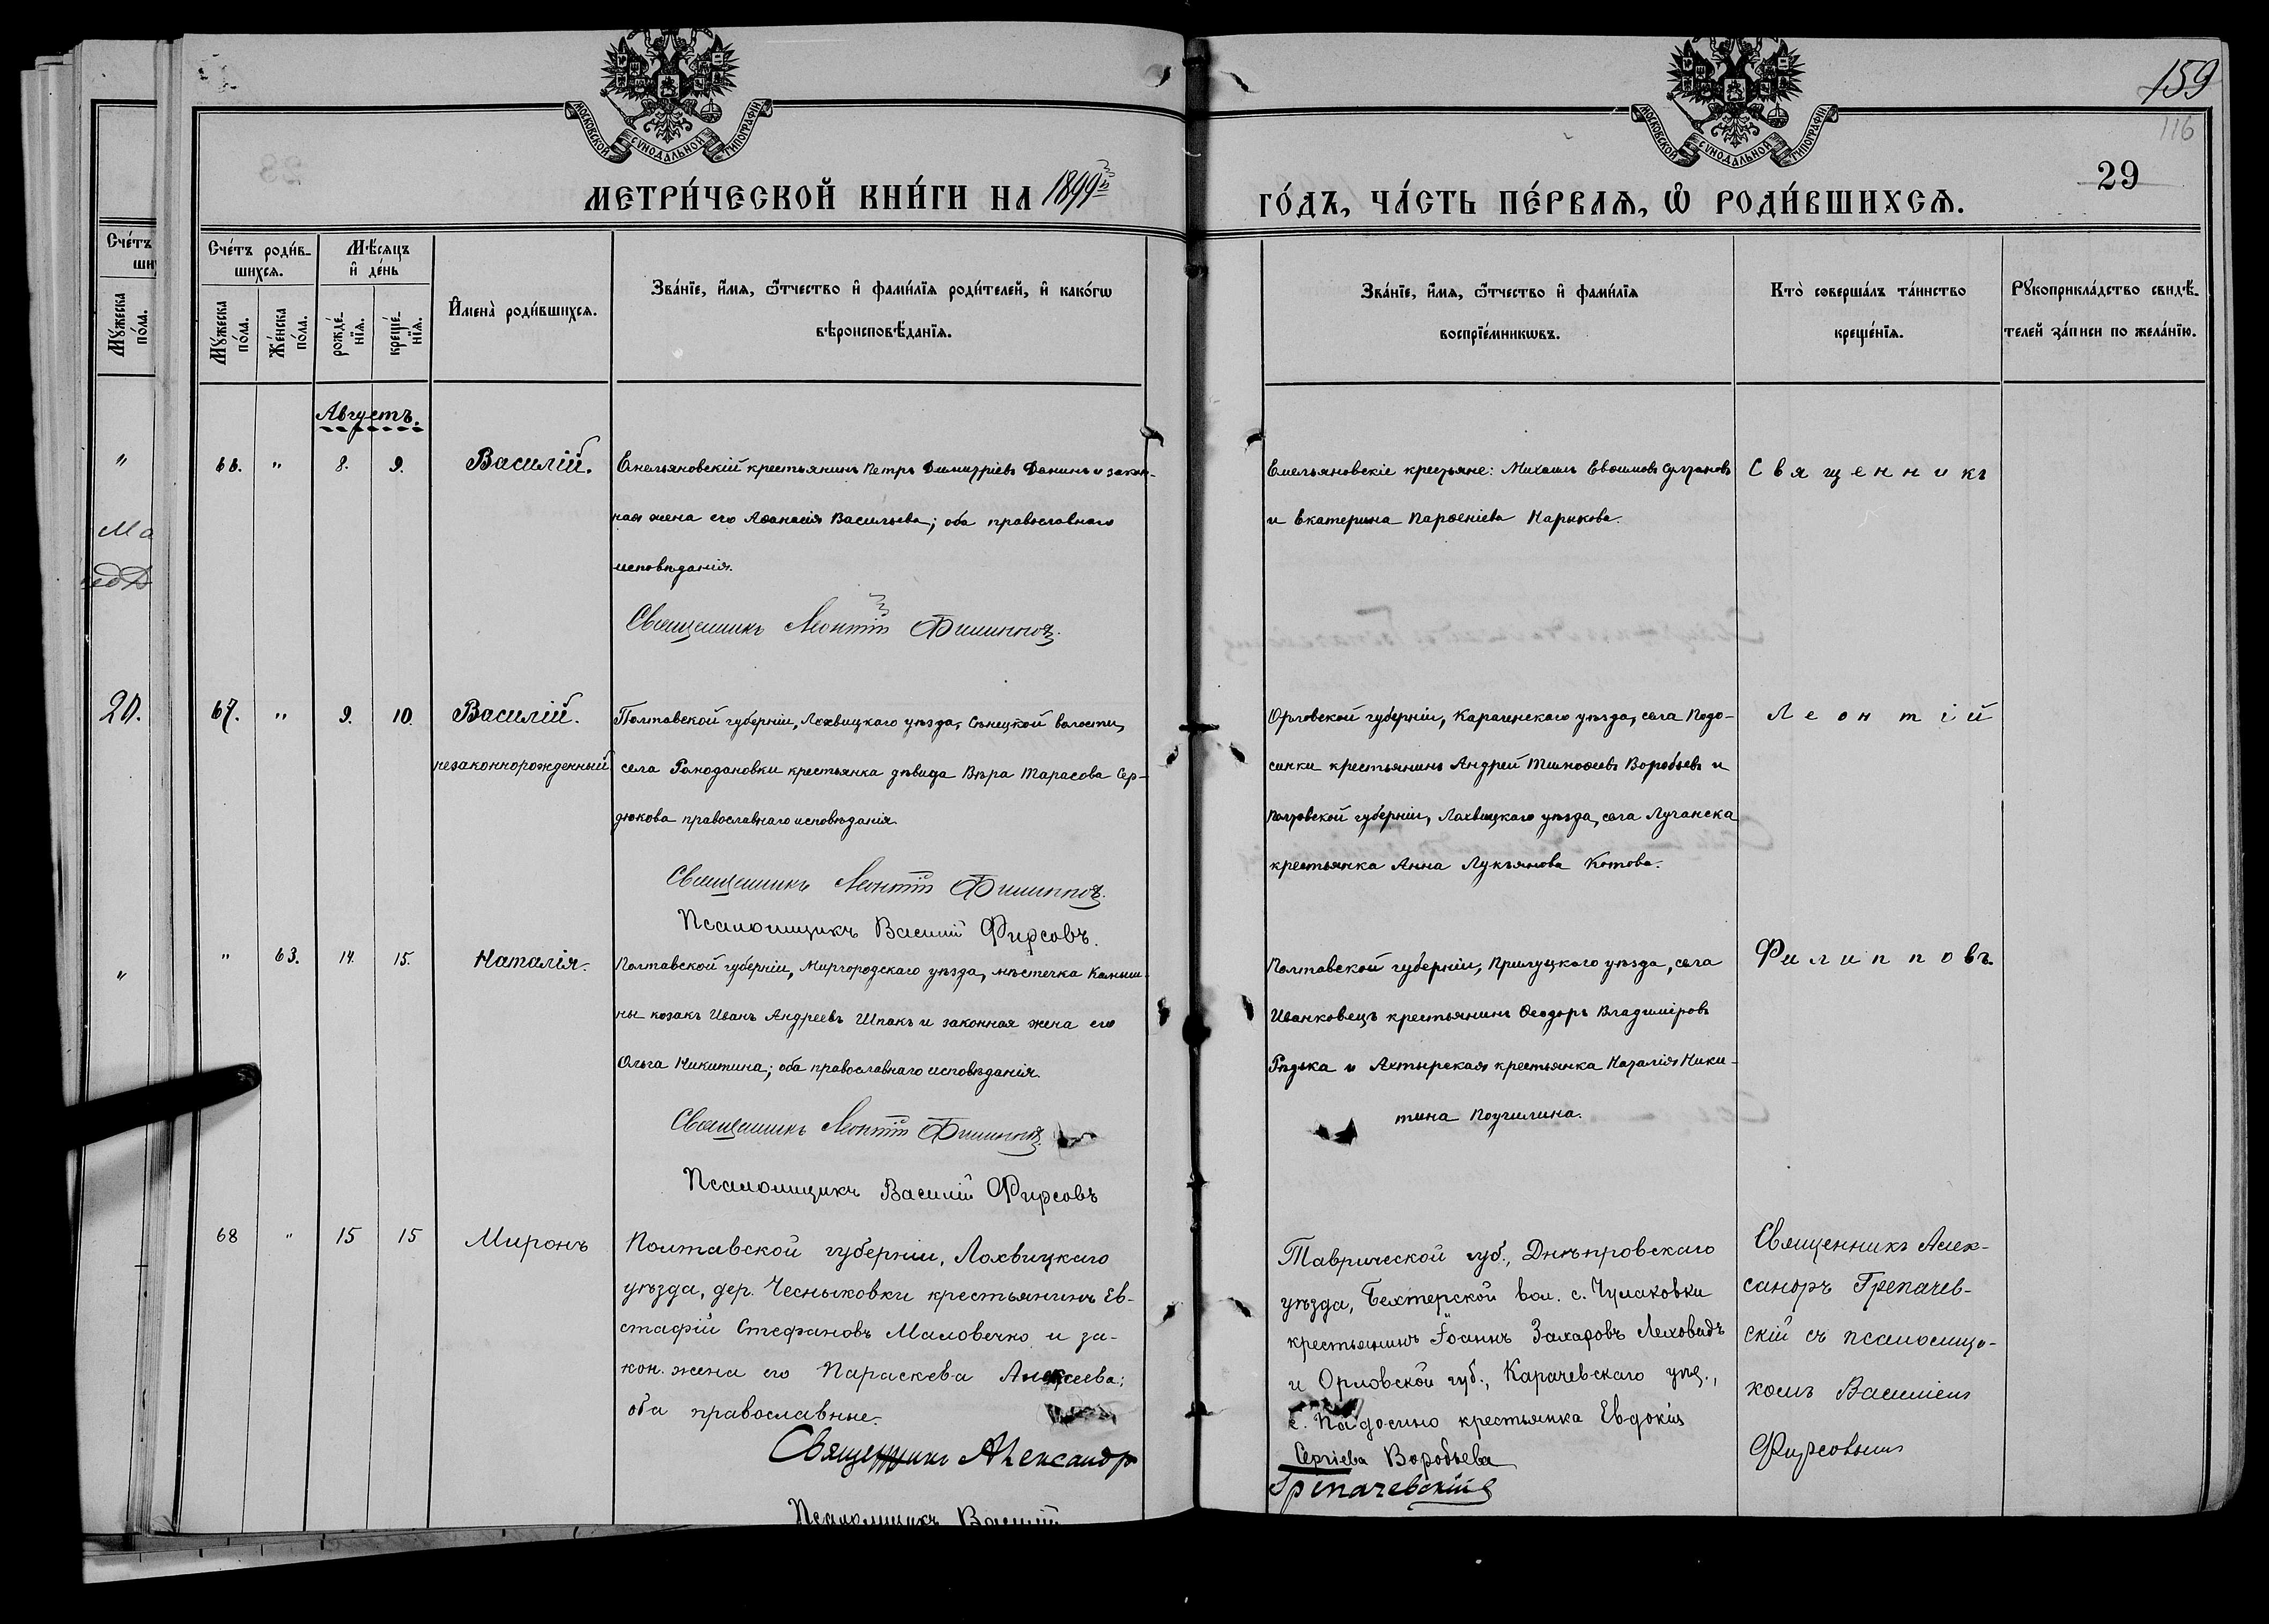 159
116
29
МОСКОВСКОЙ СѴНОДАЛЬНОЙ ТИПОГРАФІИ
МОСКОВСКОЙ СѴНОДАЛЬНОЙ ТИПОГРАФІИ
МЕТРИ́ЧЕСКОЙ КНИ́ГИ НА 1899й
ГО́ДЪ, ЧА́СТЬ ПЕ́РВАѦ, Ѡ҆ РОДИ́ВШИХСѦ.
Сче́тъ роди́в-
шихсѧ.
Мѣ́сѧцъ
и҆ де́нь
Мꙋ́жеска
по́ла.
Же́нска
по́ла.
рожде́-
нїѧ.
креще́-
нїѧ.
И҆мена̀ роди́вшихсѧ.
Зва́нїе, и҆́мѧ, ѻ҆́тчество и҆ фами́лїѧ роди́телей, и҆ како́гѡ
вѣроисповѣ́данїѧ.
Зва́нїе, и҆́мѧ, ѻ҆́тчество и҆ фами́лїѧ
воспрїе́мникѡвъ.
Кто̀ соверша́лъ та́инство
креще́нїѧ.
Рꙋкоприкла́дство свидѣ́-
телей за́писи по жела́нїю.
Августъ.
66. " 8. 9. Василій.
Емельяновскій крестьянинъ Петръ Димитріевъ Донинъ и закон-
ная жена его Аѳанасія Васильева; оба православнаго
исповѣданія.
Священникъ Леонтій Филипповъ.
Емельяновскіе крестьяне: Михаилъ Евѳимовъ
и Екатерина Парѳеніева Нарыкова.
Священникъ
67. " 9. 10. Василій.
незаконнорожденный
Полтавской губерніи, Лохвицкаго уѣзда, Сѣнецкой волости,
села Ромодановки крестьянка дѣвица Вѣра Тарасова Сер-
дюкова православнаго исповѣданія.
Священникъ Леонтій Филипповъ.
Псаломщикъ Василій Фирсовъ.
Орловской губерніи, Карачевскаго уѣзда, села Подо-
синки крестьянинъ Андрей Тимоѳеевъ Воробьевъ и
Полтавской губерніи, Лохвицкаго уѣзда, села Луганска
крестьянка Анна Лукьянова Котова.
Леонтій
" 63. 14. 15. Наталія.
Полтавской губерніи, Миргородскаго уѣзда, мѣстечка Камыш-
ны козакъ Иванъ Андреевъ Шпакъ и законная жена его
Ольга Никитина; оба православнаго исповѣданія.
Священникъ Леонтій Филипповъ.
Псаломщикъ Василій Фирсовъ
Полтавской губерніи, Прилуцкаго уѣзда, села
Иванковецъ крестьянинъ Ѳеодоръ Владиміровъ
Рѣдька и Ахтырская крестьянка Наталія Ники-
тина Поучилина.
Филипповъ.
68 " 15 15 Миронъ
Полтавской губерніи, Лохвицкаго
уѣзда, дер. Чесныковки крестьянинъ Ев-
стафій Стефановъ Маловечко и за-
кон. жена его Параскева Алексеева;
оба православные.
Священникъ Александр
Псаломщикъ Василій
Таврической губ., Днѣпровскаго
уѣзда, Бехтерской вол. с. Чулаковки
крестьянинъ Іоаннъ Захаровъ Леховидъ
и Орловской губ., Карачевскаго уѣз.,
с. Подосино крестьянка Евдокія
Сергіева Воробьева
Грепачевскій
Священникъ Алек-
сандръ Грепачев-
скій съ псаломщи-
комъ Василіем
Фирсовымъ